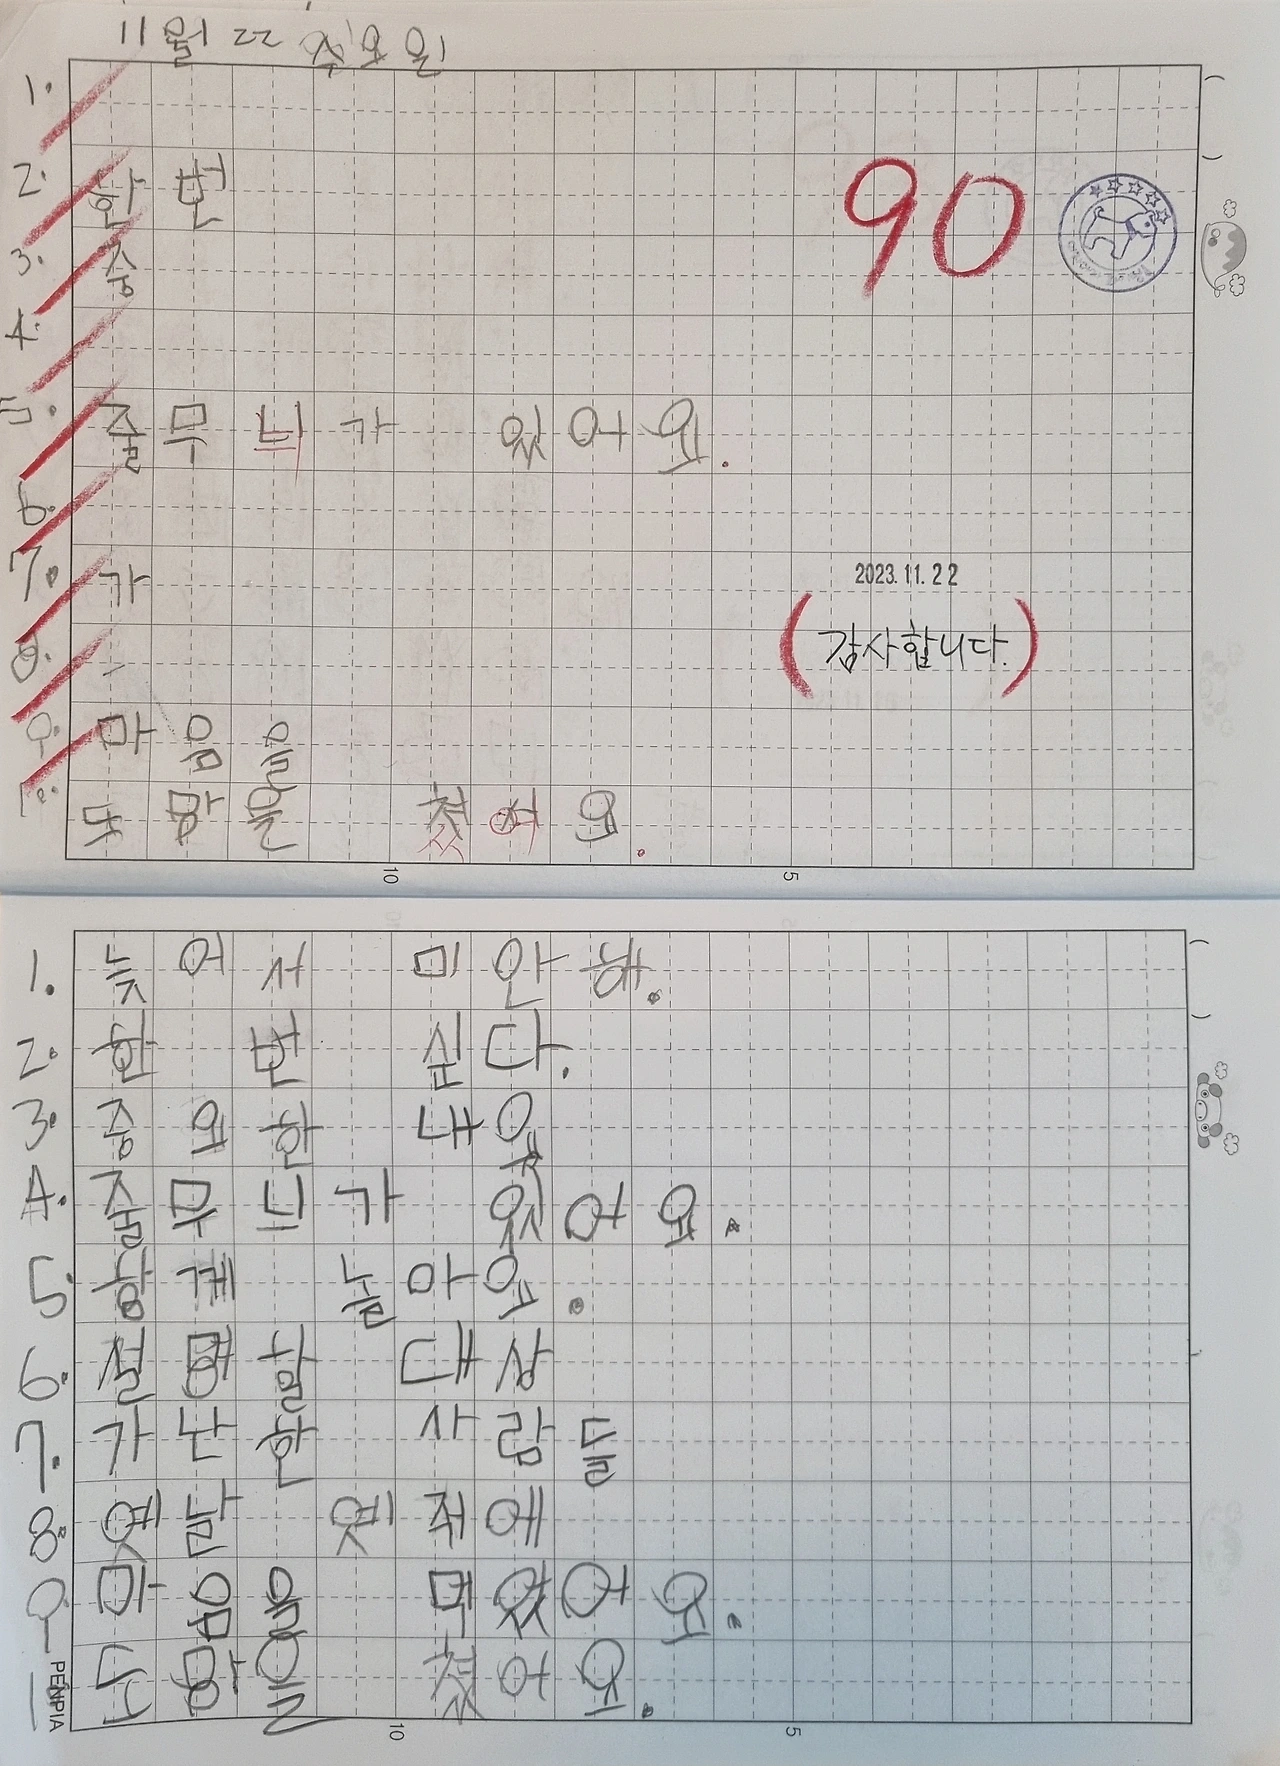 11월 22 수요일
1.
2. 한 번
3. 중
4.
5. 줄무늬가 있어요.
6.
7. 가
8.
9. 마음을
도망을 쳤어요.
90
2023.11.22
(감사합니다.)
10 5
1. 늦어서 미안해.
2. 한 번 싶다.
3. 중요한 내용
4. 줄무늬가 있어요.
5. 함께 놀아요.
6. 설명할 대상
7. 가난한 사람들
8. 옛날 옛적에
9. 마음을 먹었어요.
도망을 쳤어요.
PENPIA
10 5